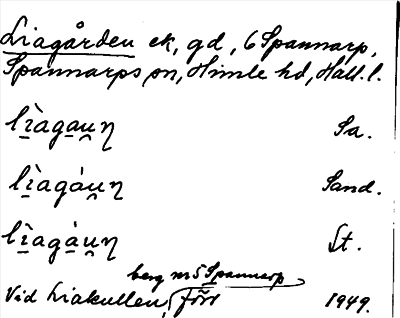 Liagården ek, gd, 6 Spannarp,
Spannarps sn, Himle hd, Hall. l.
lìagau̯ŋ Sa.
lìagàu̯ŋ Sand.
lìagàu̯ŋ St.
berg nr 5 Spannarp
Vid Liakullen, förr 1949.